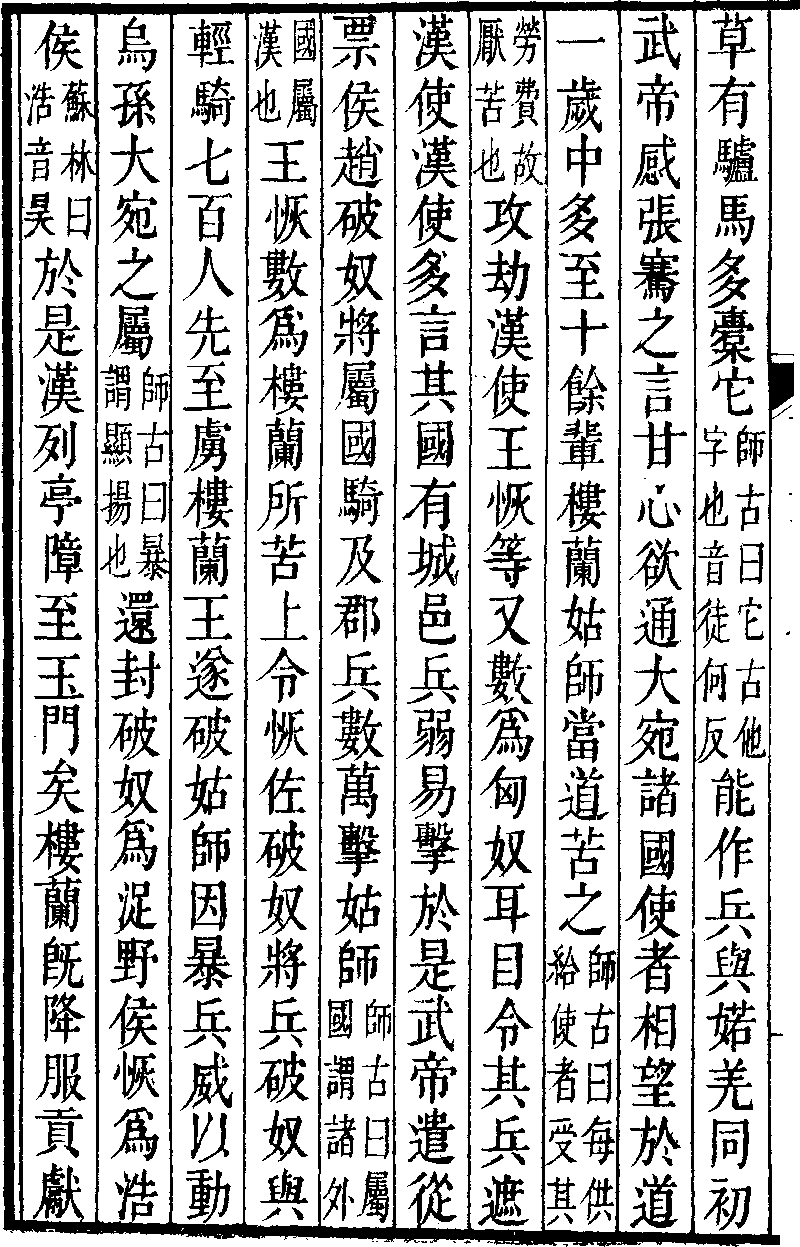 草有驢馬多橐它師古曰它古他字也音徒何反能作兵與婼羌同初
武帝感張騫之言甘心欲通大宛諸國使者相望於道
一歲中多至十餘輩樓蘭姑師當道苦之師古曰每供給使者受其
勞費故厭苦也攻劫漢使王恢等又數爲匈奴耳目令其兵遮
漢使漢使多言其國有城邑兵弱易擊於是武帝遣從
票侯趙破奴將屬國騎及郡兵數萬擊姑師師古曰屬國謂諸外
國屬漢也王恢數爲樓蘭所苦上令恢佐破奴將兵破奴與
輕騎七百人先至虜樓蘭王遂破姑師因暴兵威以動
烏孫大宛之屬師古曰暴謂顯揚也還封破奴爲浞野侯恢爲浩
侯蘇林曰浩音昊於是漢列亭障至玉門矣樓蘭旣降服貢獻